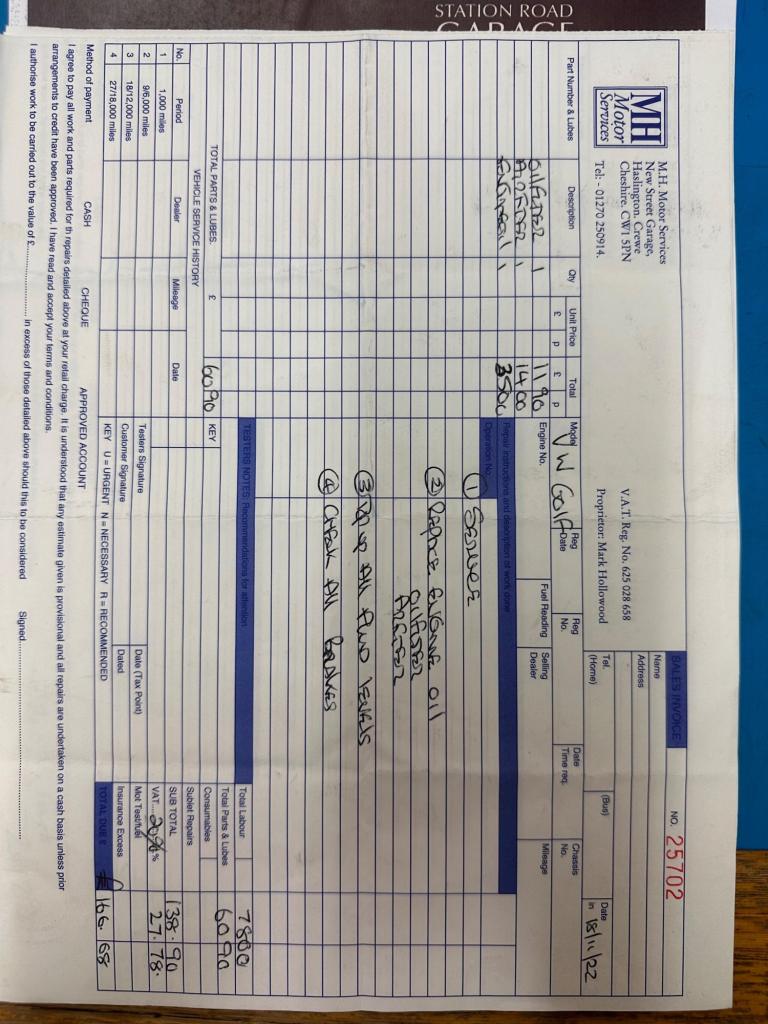 STATION ROAD
GARAGE
MH
Motor
Services
M.H. Motor Services
New Street Garage,
Haslington. Crewe
Cheshire. CW1 5PN
Tel: - 01270 250914.
V.A.T. Reg. No. 625 028 658
Proprietor: Mark Hollowood
SALES INVOICE NO. 25702
Name
Address
Tel. (Home) (Bus) Date in 18/11/22
Part Number & Lubes Description Qty Unit Price £ p Total £ p
Model VW Golf Reg Date Reg No. Date Time req. Chassis No.
Engine No. Fuel Reading Selling Dealer Mileage
OilFilter 1 11 90
AirFilter 1 14 00
Engine oil 1 35 00
Repair instructions and description of work done
Operation No.
① Service
② Replace Engine oil
OilFilter
AirFilter
③ Top up All Fluid Levels
④ Check All Brakes
TESTERS NOTES: Recommendations for attention
TOTAL PARTS & LUBES. £ 60 90 KEY
VEHICLE SERVICE HISTORY
No. Period Dealer Mileage Date
1 1,000 miles
2 9/6,000 miles
3 18/12,000 miles
4 27/18,000 miles
Testers Signature Date (Tax Point)
Customer Signature Dated
KEY U = URGENT N = NECESSARY R = RECOMMENDED
Total Labour 78 00
Total Parts & Lubes 60 90
Consumables
Sublet Repairs
SUB TOTAL 138.90
VAT 20% % 27.78.
Mot Test/fuel
Insurance Excess
TOTAL DUE £ £166.68
Method of payment CASH CHEQUE APPROVED ACCOUNT
I agree to pay all work and parts required for th repairs detailed above at your retail charge. It is understood that any estimate given is provisional and all repairs are undertaken on a cash basis unless prior
arrangements to credit have been approved. I have read and accept your terms and conditions.
I authorise work to be carried out to the value of £.................... in excess of those detailed above should this to be considered Signed....................